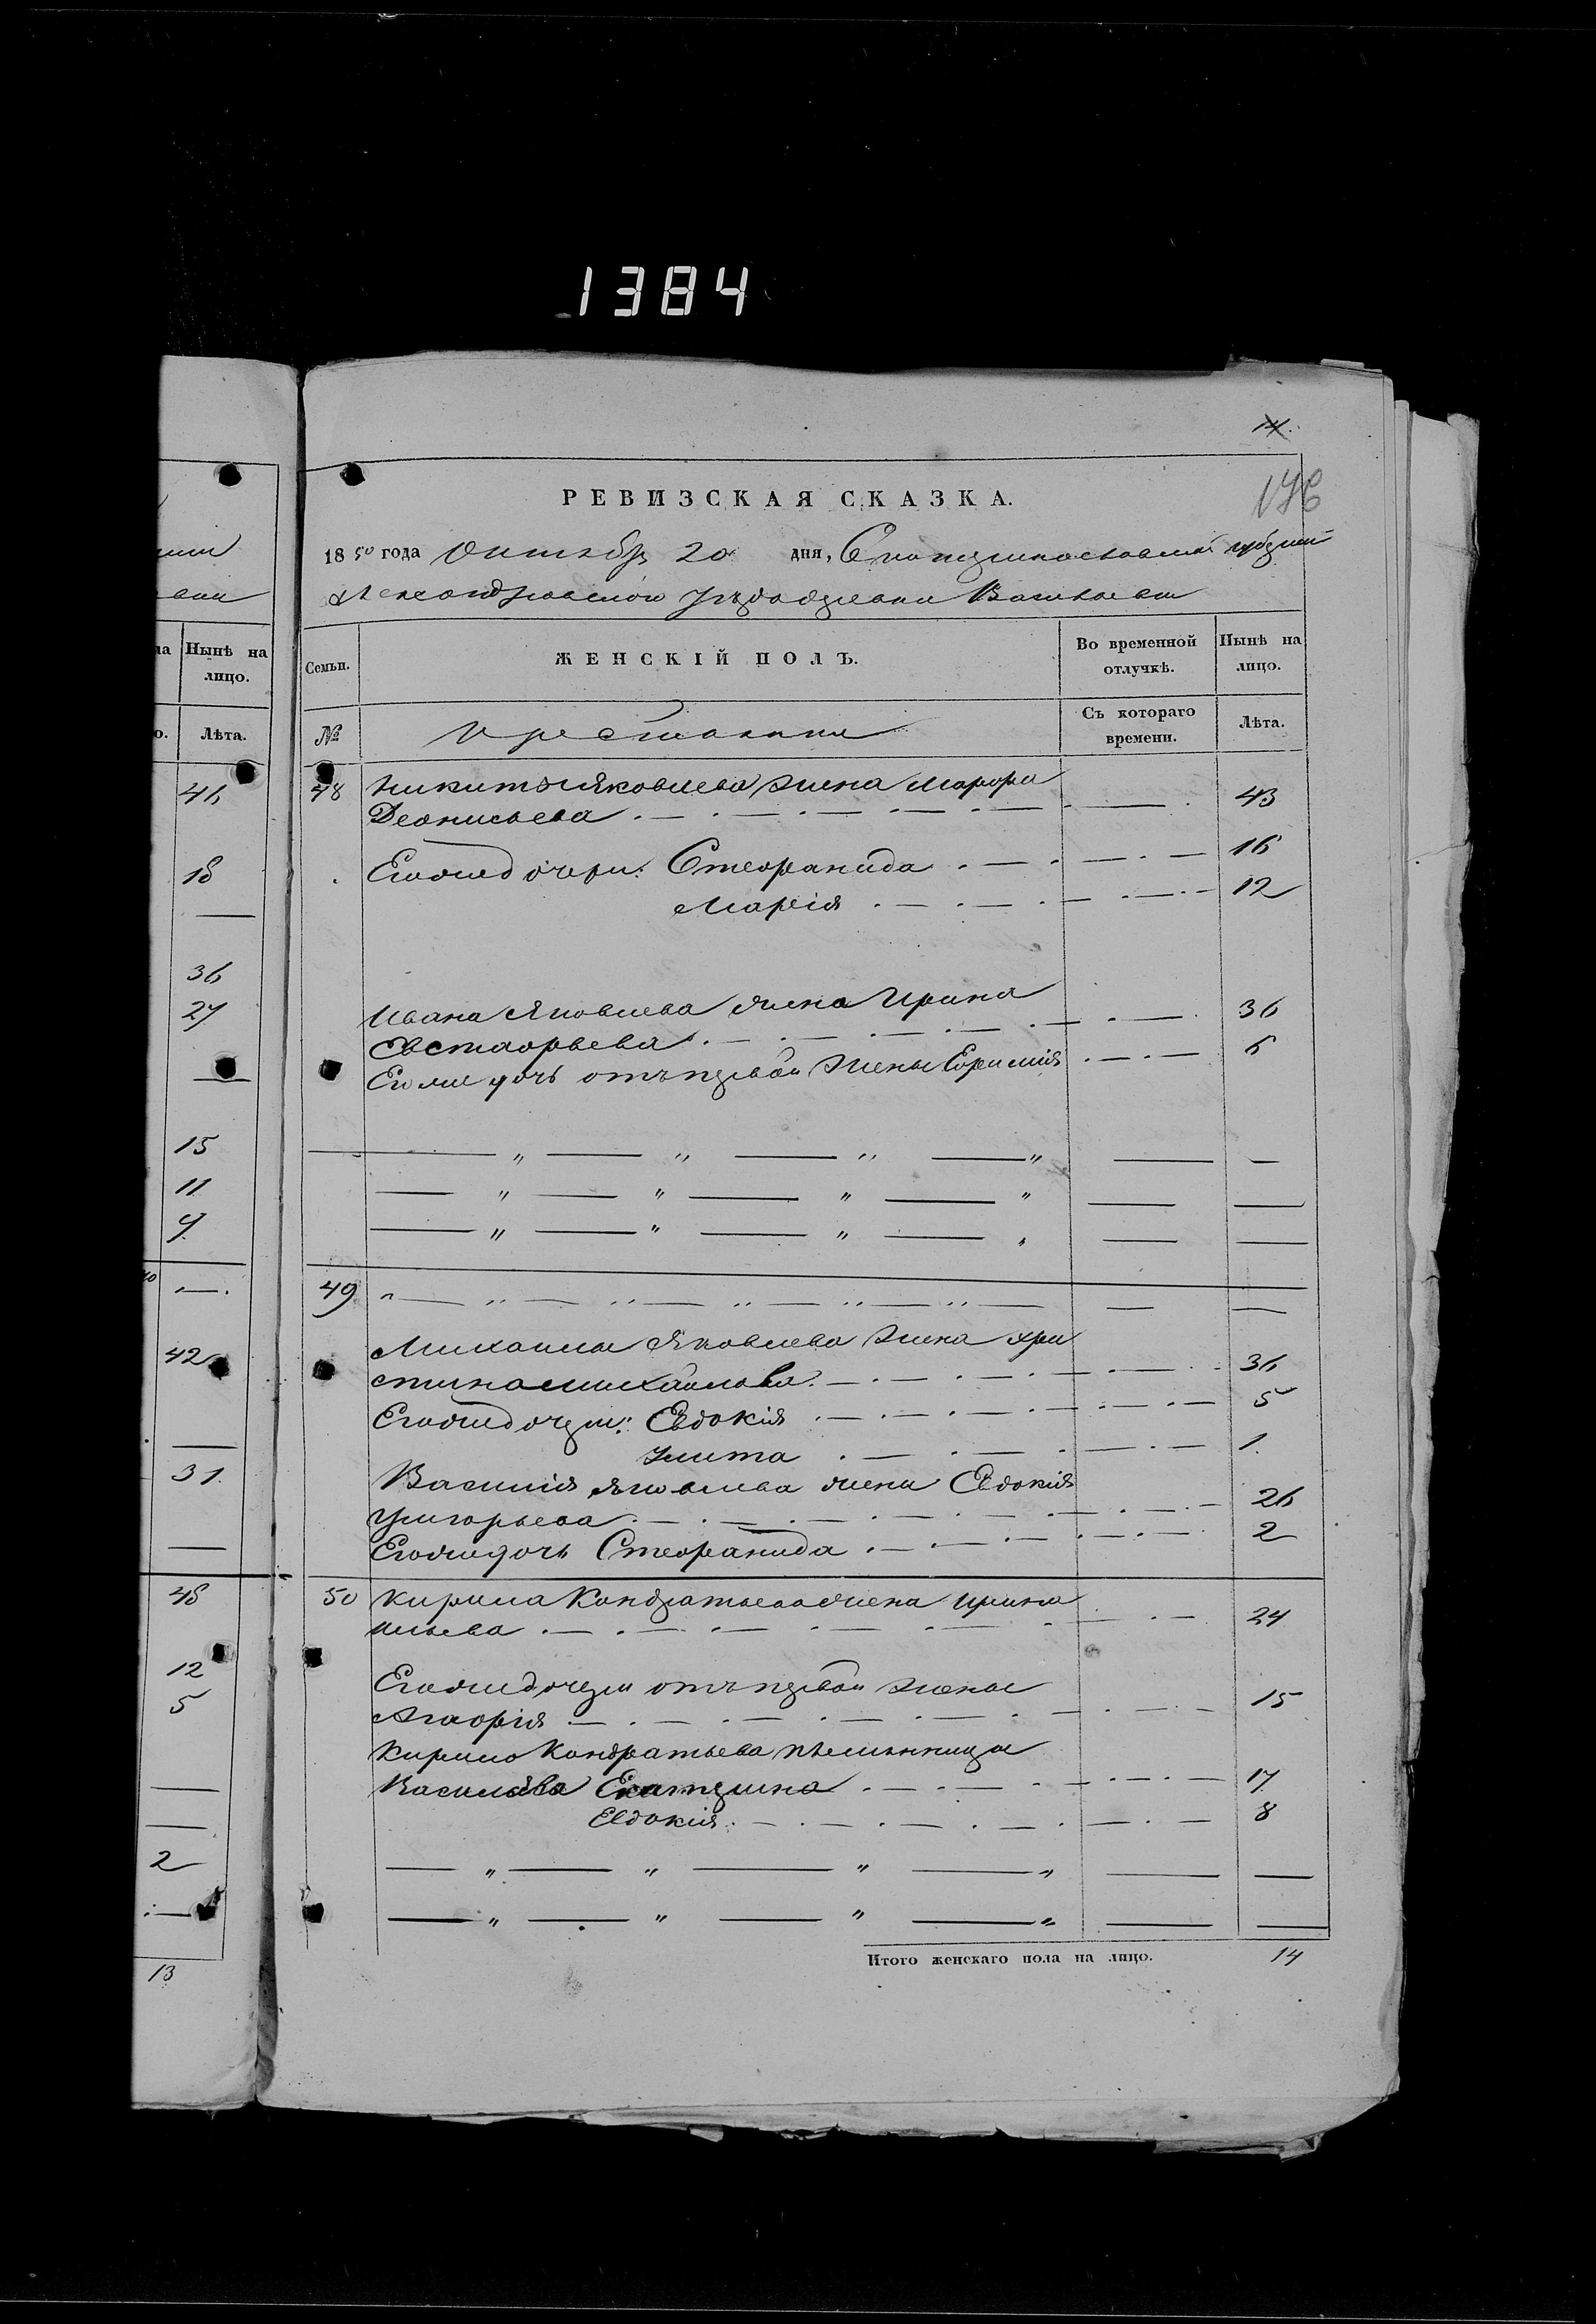 1384
14.
РЕВИЗСКАЯ СКАЗКА.
1850 года Октября 20 дня, Екатеринославской губернии
Александровского уезда деревни Васильевки
Семьи.
ЖЕНСКІЙ ПОЛЪ.
Во временной отлучкѣ.
Нынѣ на лицо.
№
крестьяне
Съ котораго времени.
Лѣта.
48 Никиты Яковлева жена Марфа
Деонисьева 43
Его же дочери: Стефанида 16
Марія 12
Ивана Яковлева жена Ирина
Евстафьева 36
Его же дочь отъ первой жены Ефимія 6
49
Михаила Яковлева жена Хри
стина Михайлова 36
Его же дочери: Евдокія 5
Улита 1.
Василія Яковлева жена Евдокія
Григорьева 26
Его же дочь Стефанида 2
50 Кирила Кондратьева жена Ирина
Ильева 24
Его же дочери отъ первой жены
Агафія 15
Кирило Кондратьева племянница
Васильева Екатерина 17
Евдокія 8
Итого женскаго пола на лицо. 14
Нынѣ на лицо.
Лѣта.
46
18
36
27
15
11
9
42
31.
48
12
5
2
13